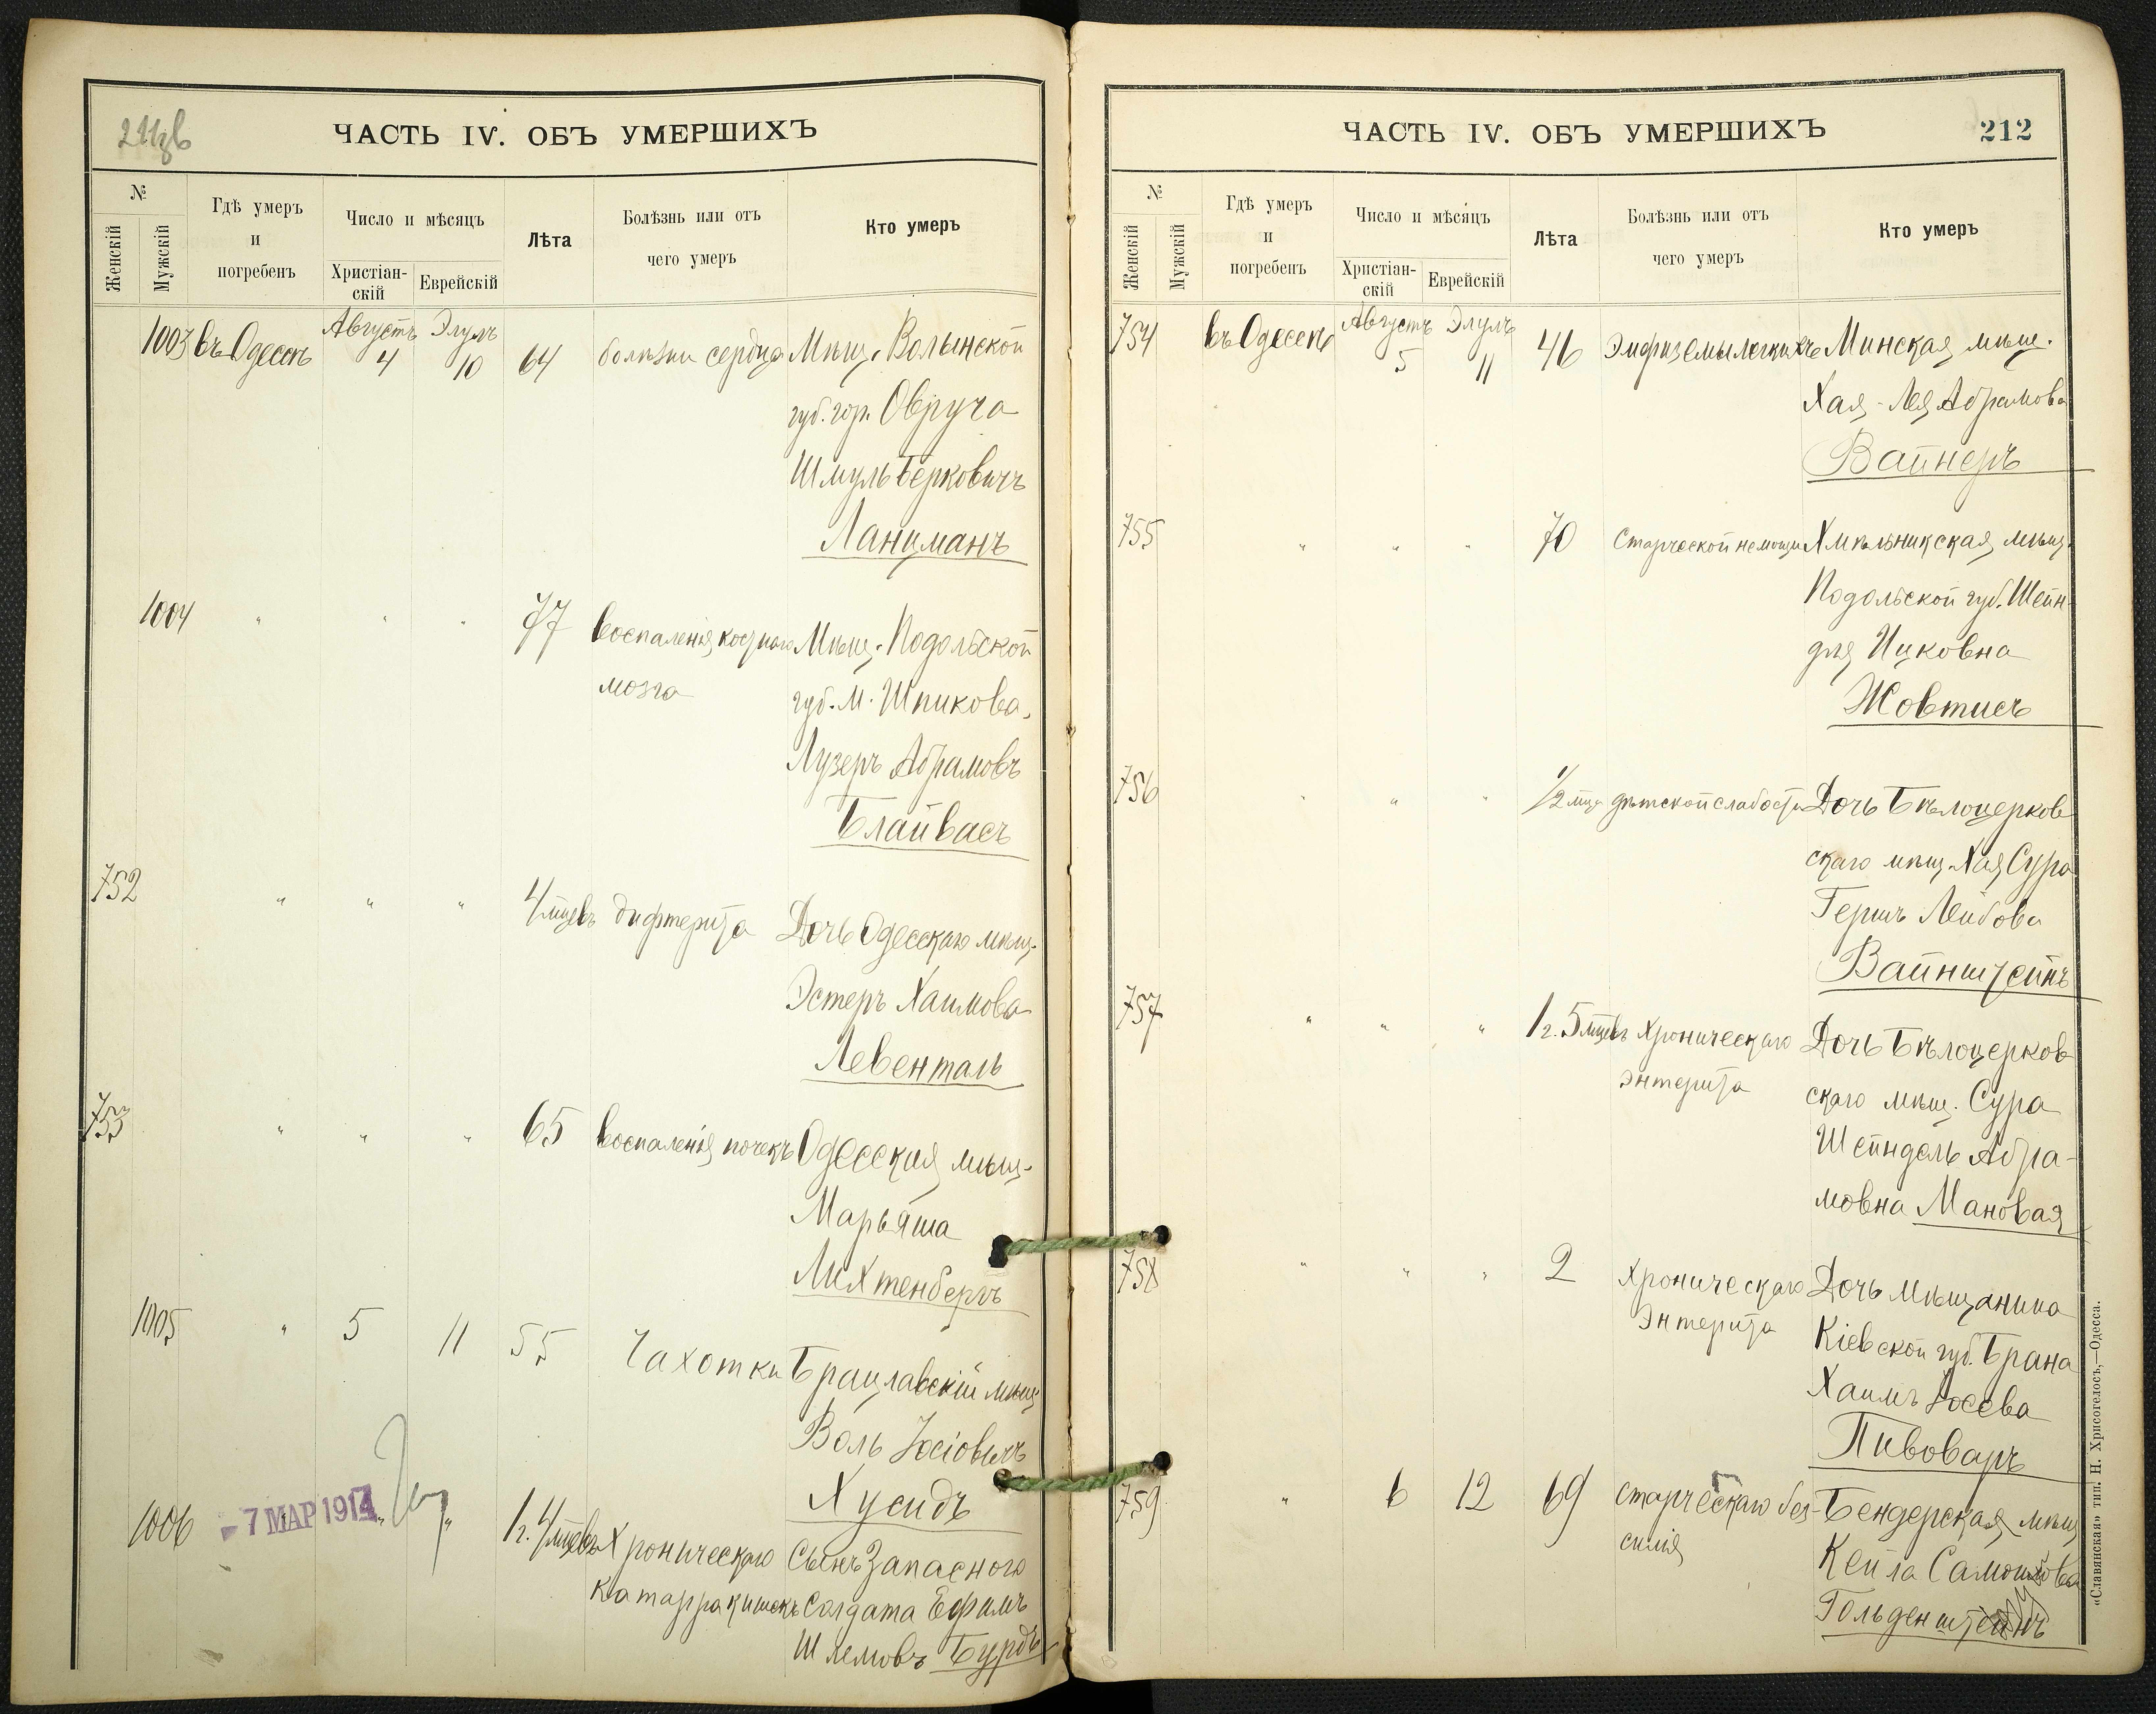 211 об
ЧАСТЬ IV. ОБЪ УМЕРШИХЪ
№
Женскій
Мужскій
Гдѣ умеръ
и
погребенъ
Число и мѣсяцъ
Христіан-
скій
Еврейскій
Лѣта
Болѣзнь или отъ
чего умеръ
Кто умеръ
1003 въ Одессѣ Августъ 4 Элулъ 10 64 болѣзни сердца Мѣщ. Волынской
губ. гор. Овруча
Шмуль Берковичъ
Ланцманъ
1004 " " " 77 воспаленія костнаго Мѣщ. Подольской
мозга губ. м. Шпикова.
Лузеръ Абрамовъ
Блайвасъ
752 " " " 4 мцевъ дифтерита Дочь Одесскаго мѣщ.
Эстеръ Хаимова
Левенталь
753 " " " 65 воспаленія почекъ Одесская мѣщ.
Марьяша
Лихтенбергъ
1005 " 5 11 55 Чахотки Брацлавскій мѣщ
Воль Іосіовичъ
Хусидъ
1006 " " 1 г. 4 мцевъ Хроническаго Сынъ Запаснаго
катарра кишекъ Солдата Ефимъ
Шлемовъ Бурдъ
- 7 МАР 1914
ЧАСТЬ IV. ОБЪ УМЕРШИХЪ
212
№
Женскій
Мужскій
Гдѣ умеръ
и
погребенъ
Число и мѣсяцъ
Христіан-
скій
Еврейскій
Лѣта
Болѣзнь или отъ
чего умеръ
Кто умеръ
754 въ Одессѣ Августъ 5 Элулъ 11 46 Эмфиземы легкихъ Минская мѣщ.
Хая-Лея Абрамова
Вайнеръ
755 " " " 70 Старческой немощи Хмѣльникская мѣщ.
Подольской губ. Шейн-
для Ицковна
Жовтисъ
756 " " " 1/2 мца дѣтской слабости Дочь Бѣлоцерков
скаго мѣщ. Хая Сура
Гершъ Лейбова
Вайнштейнъ
757 " " " 1 г. 5 мцевъ Хроническаго Дочь Бѣлоцерков
энтерита скаго мѣщ. Сура
Шейндель Абра-
мовна Мановая
758 " " " 2 Хроническаго Дочь мѣщанина
Энтерита Кіевской губ. Брана
Хаимъ Іосева
Пивоваръ
759 " 6 12 69 старческаго без- Бендерская мѣщ
силія Кейла Самойлова
Гольденштейнъ
«Славянская» тип. Н. Хрисогелосъ,—Одесса.